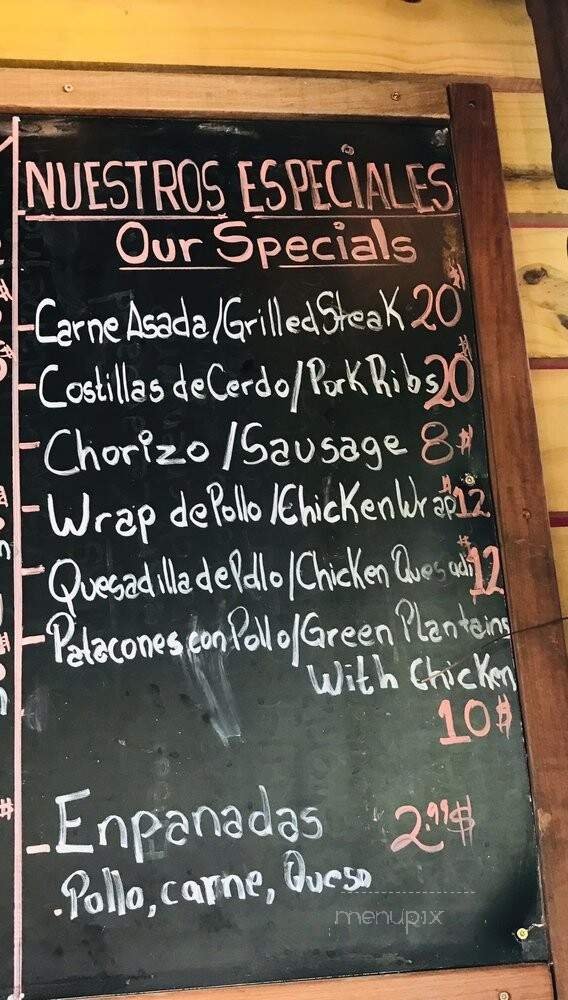 NUESTROS ESPECIALES
Our Specials
- Carne Asada/Grilled Steak 20$
- Costillas de Cerdo/Pork Ribs 20$
- Chorizo/Sausage 8$
- Wrap de Pollo/Chicken Wrap $12
- Quesadilla de Pollo/Chicken Quesadi $12
- Patacones con Pollo/Green Plantains
With Chicken
10$
- Enpanadas 2.99$
.Pollo, carne, Queso
menupix